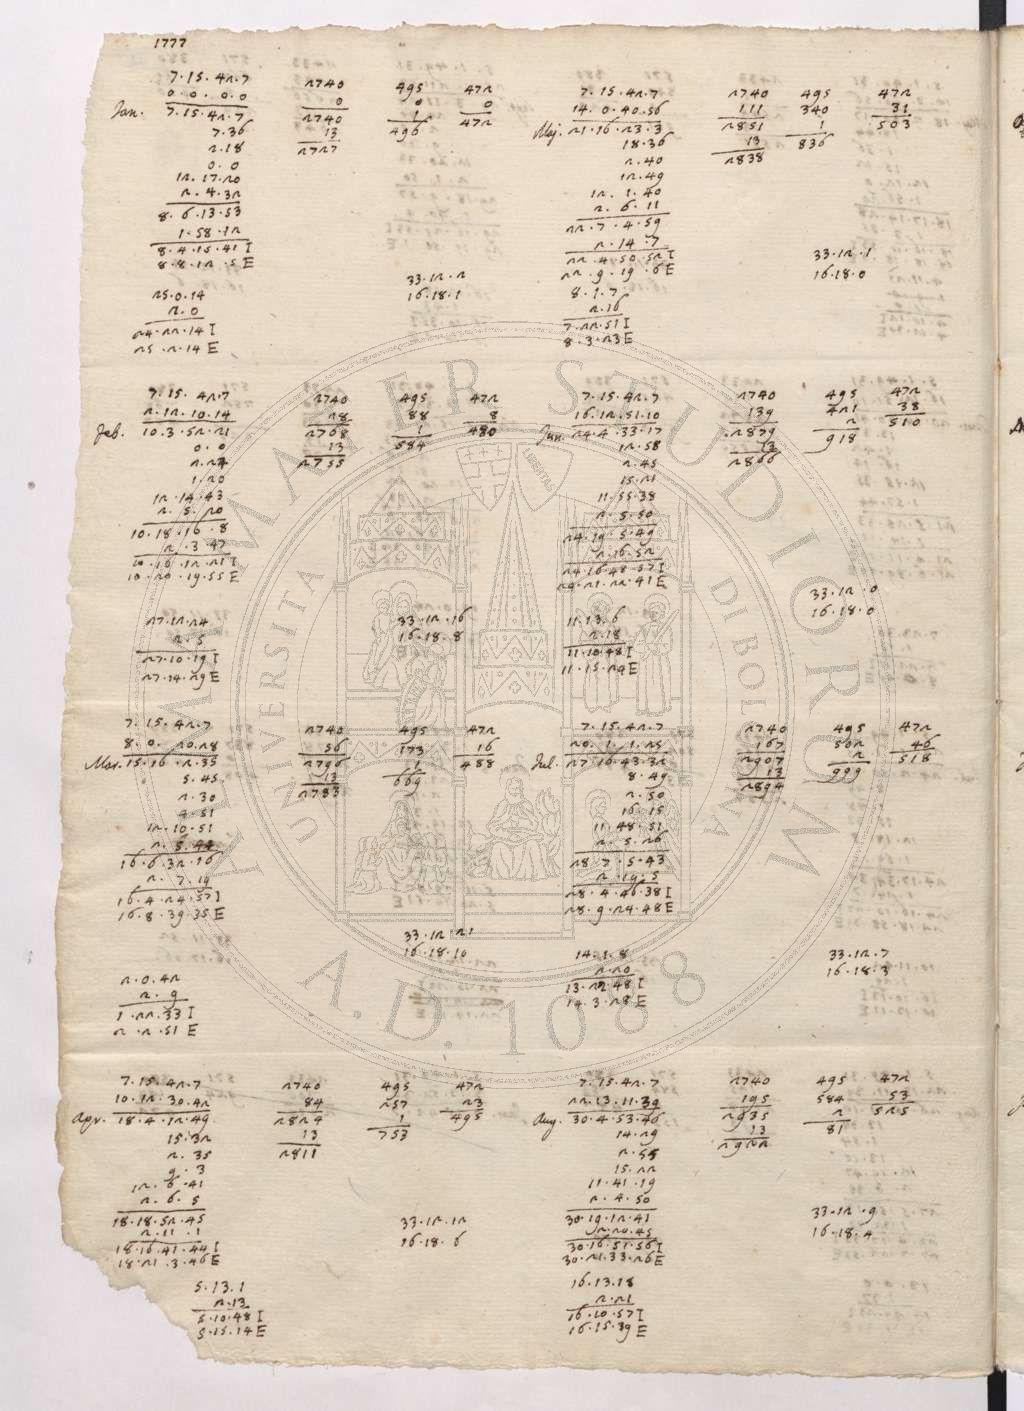 1777
7.15.42.7
0.0.0.0
Jan. 7.15.42.7
7.36
2.18
0.0
12.17.20
2.4.32
8.6.13.53
1.58.12
8.4.15.41 I
8.8.12.5 E
25.0.14
2.0
24.22.14 I
25.2.14 E
2740
0
2740
13
2727
495
0
1
496
472
0
472
33.12.2
16.18.1
7.15.42.7
2.12.10.14
Feb. 10.3.52.21
0.0
2.27
1.20
12.14.43
2.5.20
10.18.16.8
2.3.47
10.16.12.21 I
10.20.19.55 E
27.12.24
2.5
27.10.19 I
27.14.29 E
2740
28
2768
13
2755
495
88
1
584
472
8
480
33.12.16
16.18.8
7.15.42.7
8.0.20.28
Mar. 15.16.2.35
5.45
2.30
4.51
12.10.51
2.5.44
16.6.32.16
2.7.19
16.4.24.57 I
16.8.39.35 E
2.0.42
2.9
1.22.33 I
2.2.51 E
2740
56
2796
13
2783
495
173
1
669
472
16
488
33.12.21
16.18.10
7.15.42.7
10.12.30.42
Apr. 18.4.12.49
15.32
2.35
9.3
12.6.41
2.6.5
18.18.52.45
2.11.1
18.16.41.44 I
18.21.3.46 E
5.13.1
2.13
5.10.48 I
5.15.14 E
2740
84
2824
13
2811
495
257
1
753
472
23
495
33.12.12
16.18.6
7.15.42.7
14.0.40.56
Maj. 21.16.23.3
18.36
2.40
12.49
12.1.40
2.6.11
22.7.4.59
2.14.7
22.4.50.52 I
22.9.19.6 E
8.1.7
2.16
7.22.51 I
8.3.23 E
2740
111
2851
13
2838
495
340
1
836
472
31
503
33.12.1
16.18.0
7.15.42.7
16.12.51.10
Jun. 24.4.33.17
12.58
2.45
15.21
11.55.38
2.5.50
24.19.5.49
2.16.52
24.16.48.57 I
24.21.22.41 E
11.13.6
2.18
11.10.48 I
11.15.24 E
2740
139
2879
13
2866
495
421
2
918
472
38
510
33.12.0
16.18.0
7.15.42.7
20.1.1.25
Jul. 27.16.43.32
8.49
2.50
16.15
11.48.51
2.5.26
28.7.5.43
2.19.5
28.4.46.38 I
28.9.24.48 E
14.1.8
2.20
13.22.48 I
14.3.28 E
2740
167
2907
13
2894
495
502
2
999
472
46
518
33.12.7
16.18.3
7.15.42.7
22.13.11.39
Aug. 30.4.53.46
14.29
2.55
15.22
11.41.19
2.4.50
30.19.12.41
2.20.45
30.16.51.56 I
30.21.33.26 E
16.13.18
2.21
16.10.57 I
16.15.39 E
2740
195
2935
13
2922
495
584
2
81
472
53
525
33.12.9
16.18.4